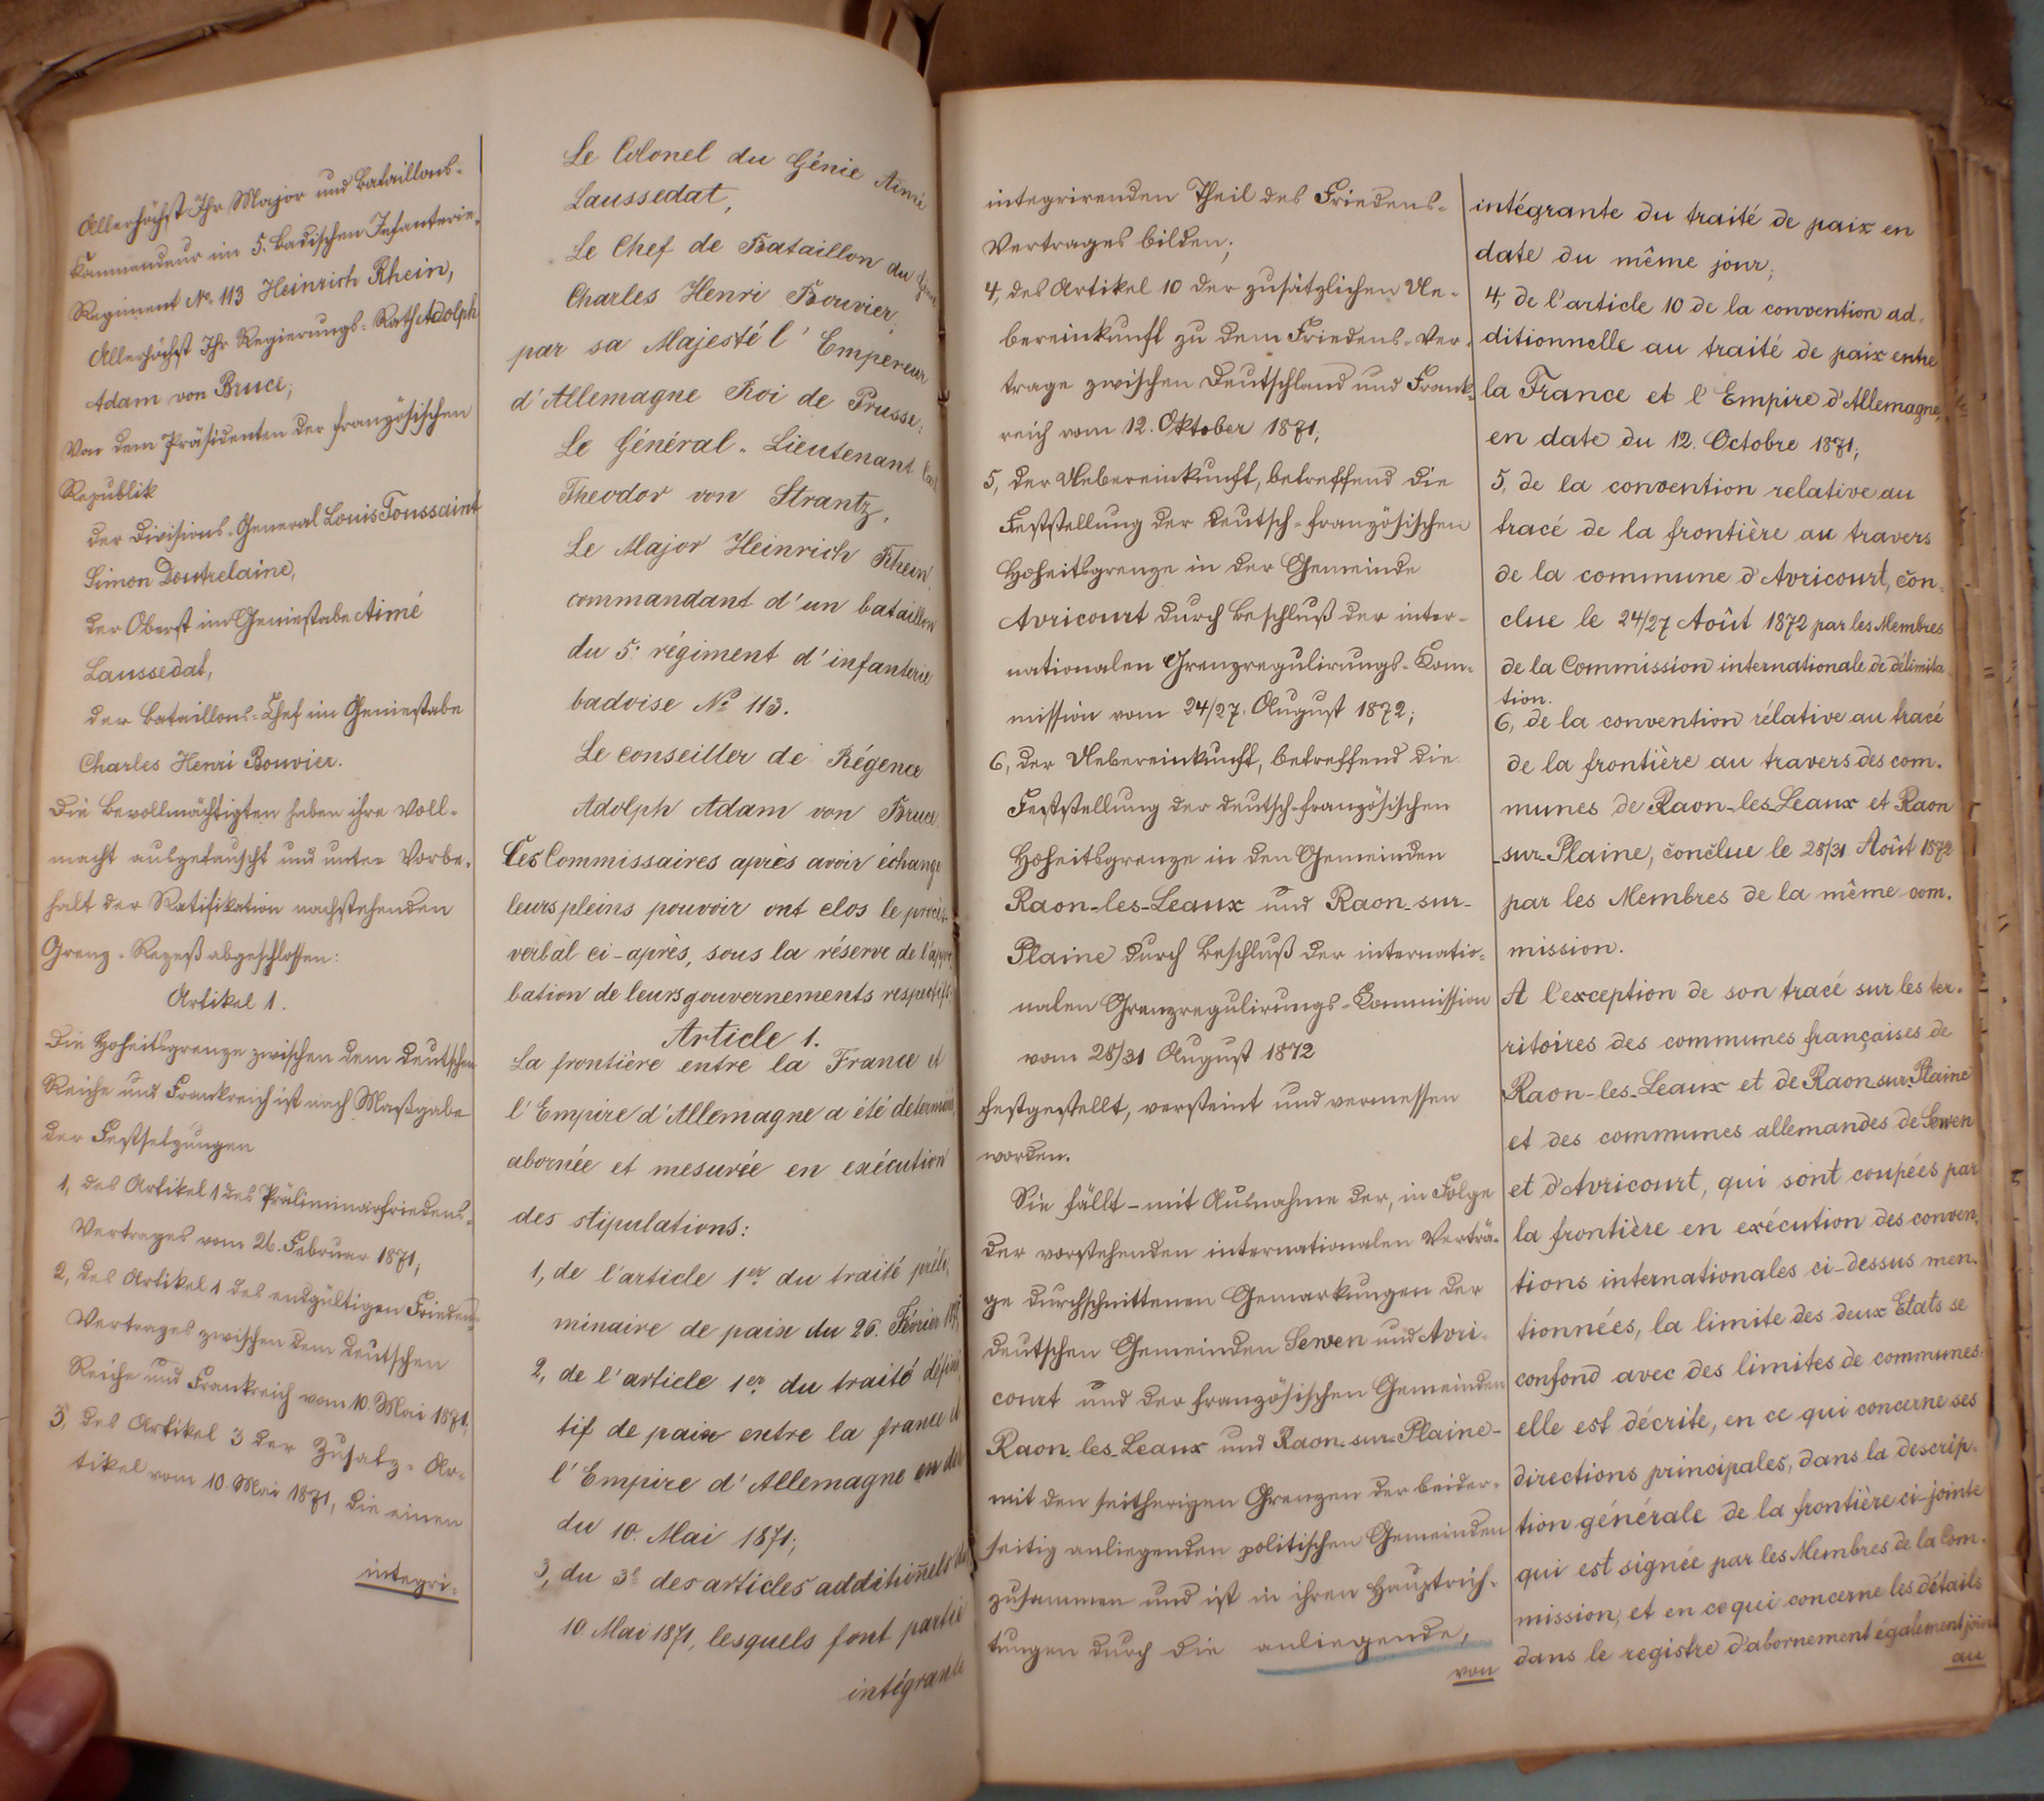 Allerhöchst Ihr Major und Bataillons-
Kommandeur im 5. Badischen Infanterie-
Regiment No. 113 Heinrich Rhein,
Allerhöchst Ihr Regierungs-Rath Adolph
Adam von Bruce;
Von dem Präsidenten der französischen
Republik
der Divisions-General Louis Toussaint
Simon Doutrelaine,
der Oberst im Geniestabe Aimé
Laussedat,
der Bataillons-Chef im Geniestabe
Charles Henri Bouvier.
Die Bevollmächtigten haben ihre Voll-
macht ausgetauscht und unter Vorbe-
halt der Ratifikation nachstehenden
Grenz-Rezeß abgeschlossen:
Artikel 1.
Die Hoheitsgrenze zwischen dem Deutschen
Reiche und Frankreich ist nach Maßgabe
der Festsetzungen
1, des Artikel 1 des Präliminarfriedens-
Vertrages vom 26. Februar 1871;
2, des Artikel 1 des endgültigen Friedens-
Vertrages zwischen dem Deutschen
Reiche und Frankreich vom 10. Mai 1871;
3, des Artikel 3 der Zusatz-Ar-
tikel vom 10. Mai 1871, die einen
integri-
Le Colonel du Génie Aimé
Laussedat,
Le Chef de Bataillon du Génie
Charles Henri Bouvier;
par sa Majesté l'Empereur
d'Allemagne Roi de Prusse:
Le Général-Lieutenant Carl
Theodor von Strantz,
Le Major Heinrich Rhein,
commandant d'un bataillon
du 5e régiment d'infanterie
badoise No 113.
Le conseiller de Régence
Adolph Adam von Bruce.
Les Commissaires après avoir échangé
leurs pleins pouvoir ont clos le procès-
verbal ci-après, sous la réserve de l'appro-
bation de leurs gouvernements respectifs:
Article 1.
La frontière entre la France et
l'Empire d'Allemagne a été determinée,
abornée et mesurée en exécution
des stipulations:
1, de l'article 1er du traité préli-
minaire de paix du 26. Février 1871;
2, de l'article 1er du traité défini-
tif de paix entre la france et
l'Empire d'Allemagne en date
du 10. Mai 1871;
3, du 3e des articles additionels du
10. Mai 1871, lesquels font partie
intégrante
integrirenden Theil des Friedens-
Vertrages bilden;
4, des Artikel 10 der zusätzlichen Ue-
bereinkunft zu dem Friedens-Ver-
trage zwischen Deutschland und Frank-
reich vom 12. Oktober 1871;
5, der Uebereinkunft, betreffend die
Feststellung der deutsch-französischen
Hoheitsgrenze in der Gemeinde
Avricourt durch Beschluß der inter-
nationalen Grenzregulirungs-Kom-
mission vom 24/27. August 1872;
6, der Uebereinkunft, betreffend die
Feststellung der deutsch-französischen
Hoheitsgrenze in den Gemeinden
Raon-les-Leaux und Raon-sur-
Plaine durch Beschluß der internatio-
nalen Grenzregulirungs-Kommission
vom 28/31 August 1872
festgestellt, versteint und vermessen
worden.
Sie fällt - mit Ausnahme der, in Folge
der vorstehenden internationalen Verträ-
ge durchschnittenen Gemarkungen der
deutschen Gemeinden Sewen und Avri-
court und der französischen Gemeinden
Raon-les-Leaux und Raon-sur-Plaine -
mit den seitherigen Grenzen der beider-
seitig anliegenden politischen Gemeinden
zusammen und ist in ihren Hauptrich-
tungen durch die anliegende,
von
intégrante du traité de paix en
date du même jour;
4, de l'article 10 de la convention ad-
ditionnelle au traité de paix entre
la France et l'Empire d'Allemagne,
en date du 12. Octobre 1871;
5, de la convention relative au
tracé de la frontière au travers
de la commune d'Avricourt, con-
clue le 24/27 Août 1872 par les Membres
de la Commission internationale de délimita-
tion.
6, de la convention rélative au tracé
de la frontière au travers des com-
munes de Raon-les-Leaux et Raon
-sur-Plaine, conclue le 28/31 Août 1872
par les Membres de la même com-
mission.
A l'exception de son tracé sur les ter-
ritoires des communes françaises de
Raon-les-Leaux et de Raon-sur-Plaine
et des communes allemandes de Sewen
et d'Avricourt, qui sont coupées par
la frontière en exécution des conven-
tions internationales ci-dessus men-
tionnées, la limite des deux Etats se
confond avec des limites de communes:
elle est décrite, en ce qui concerne ses
directions principales, dans la descrip-
tion générale de la frontière ci-jointe
qui est signée par les Membres de la Com-
mission, et en ce qui concerne les détails
dans le registre d'abornement également joint
au